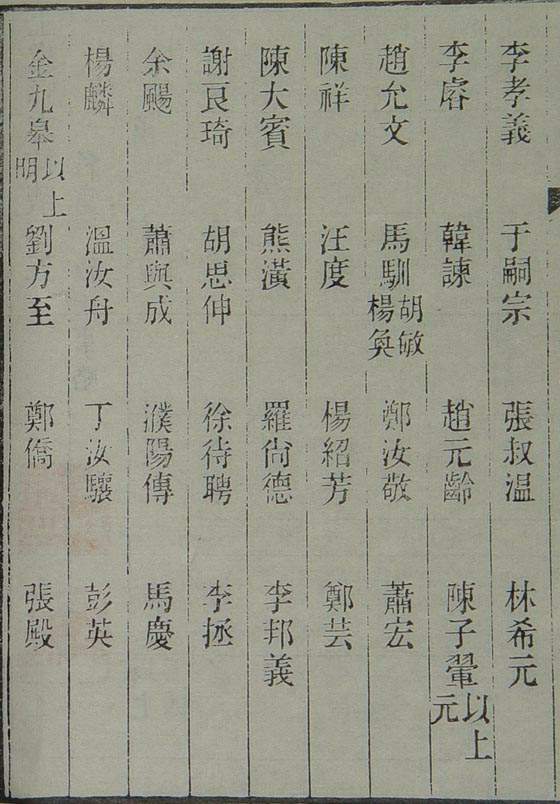 李孝義 于嗣宗 張叔温 林希元
李睿 韓諫 趙元齡 陳子翬以上元
趙允文 馬馴 胡敏 楊奐 鄭汝敬 蕭宏
陳祥 汪度 楊紹芳 鄭芸
陳大賓 熊潢 羅尙德 李邦義
謝良琦 胡思伸 徐待聘 李拯
余颺 蕭與成 濮陽傳 馬慶
楊麟 溫汝舟 丁汝驤 彭英
金九皋以上明 劉方至 鄭僑 張殿